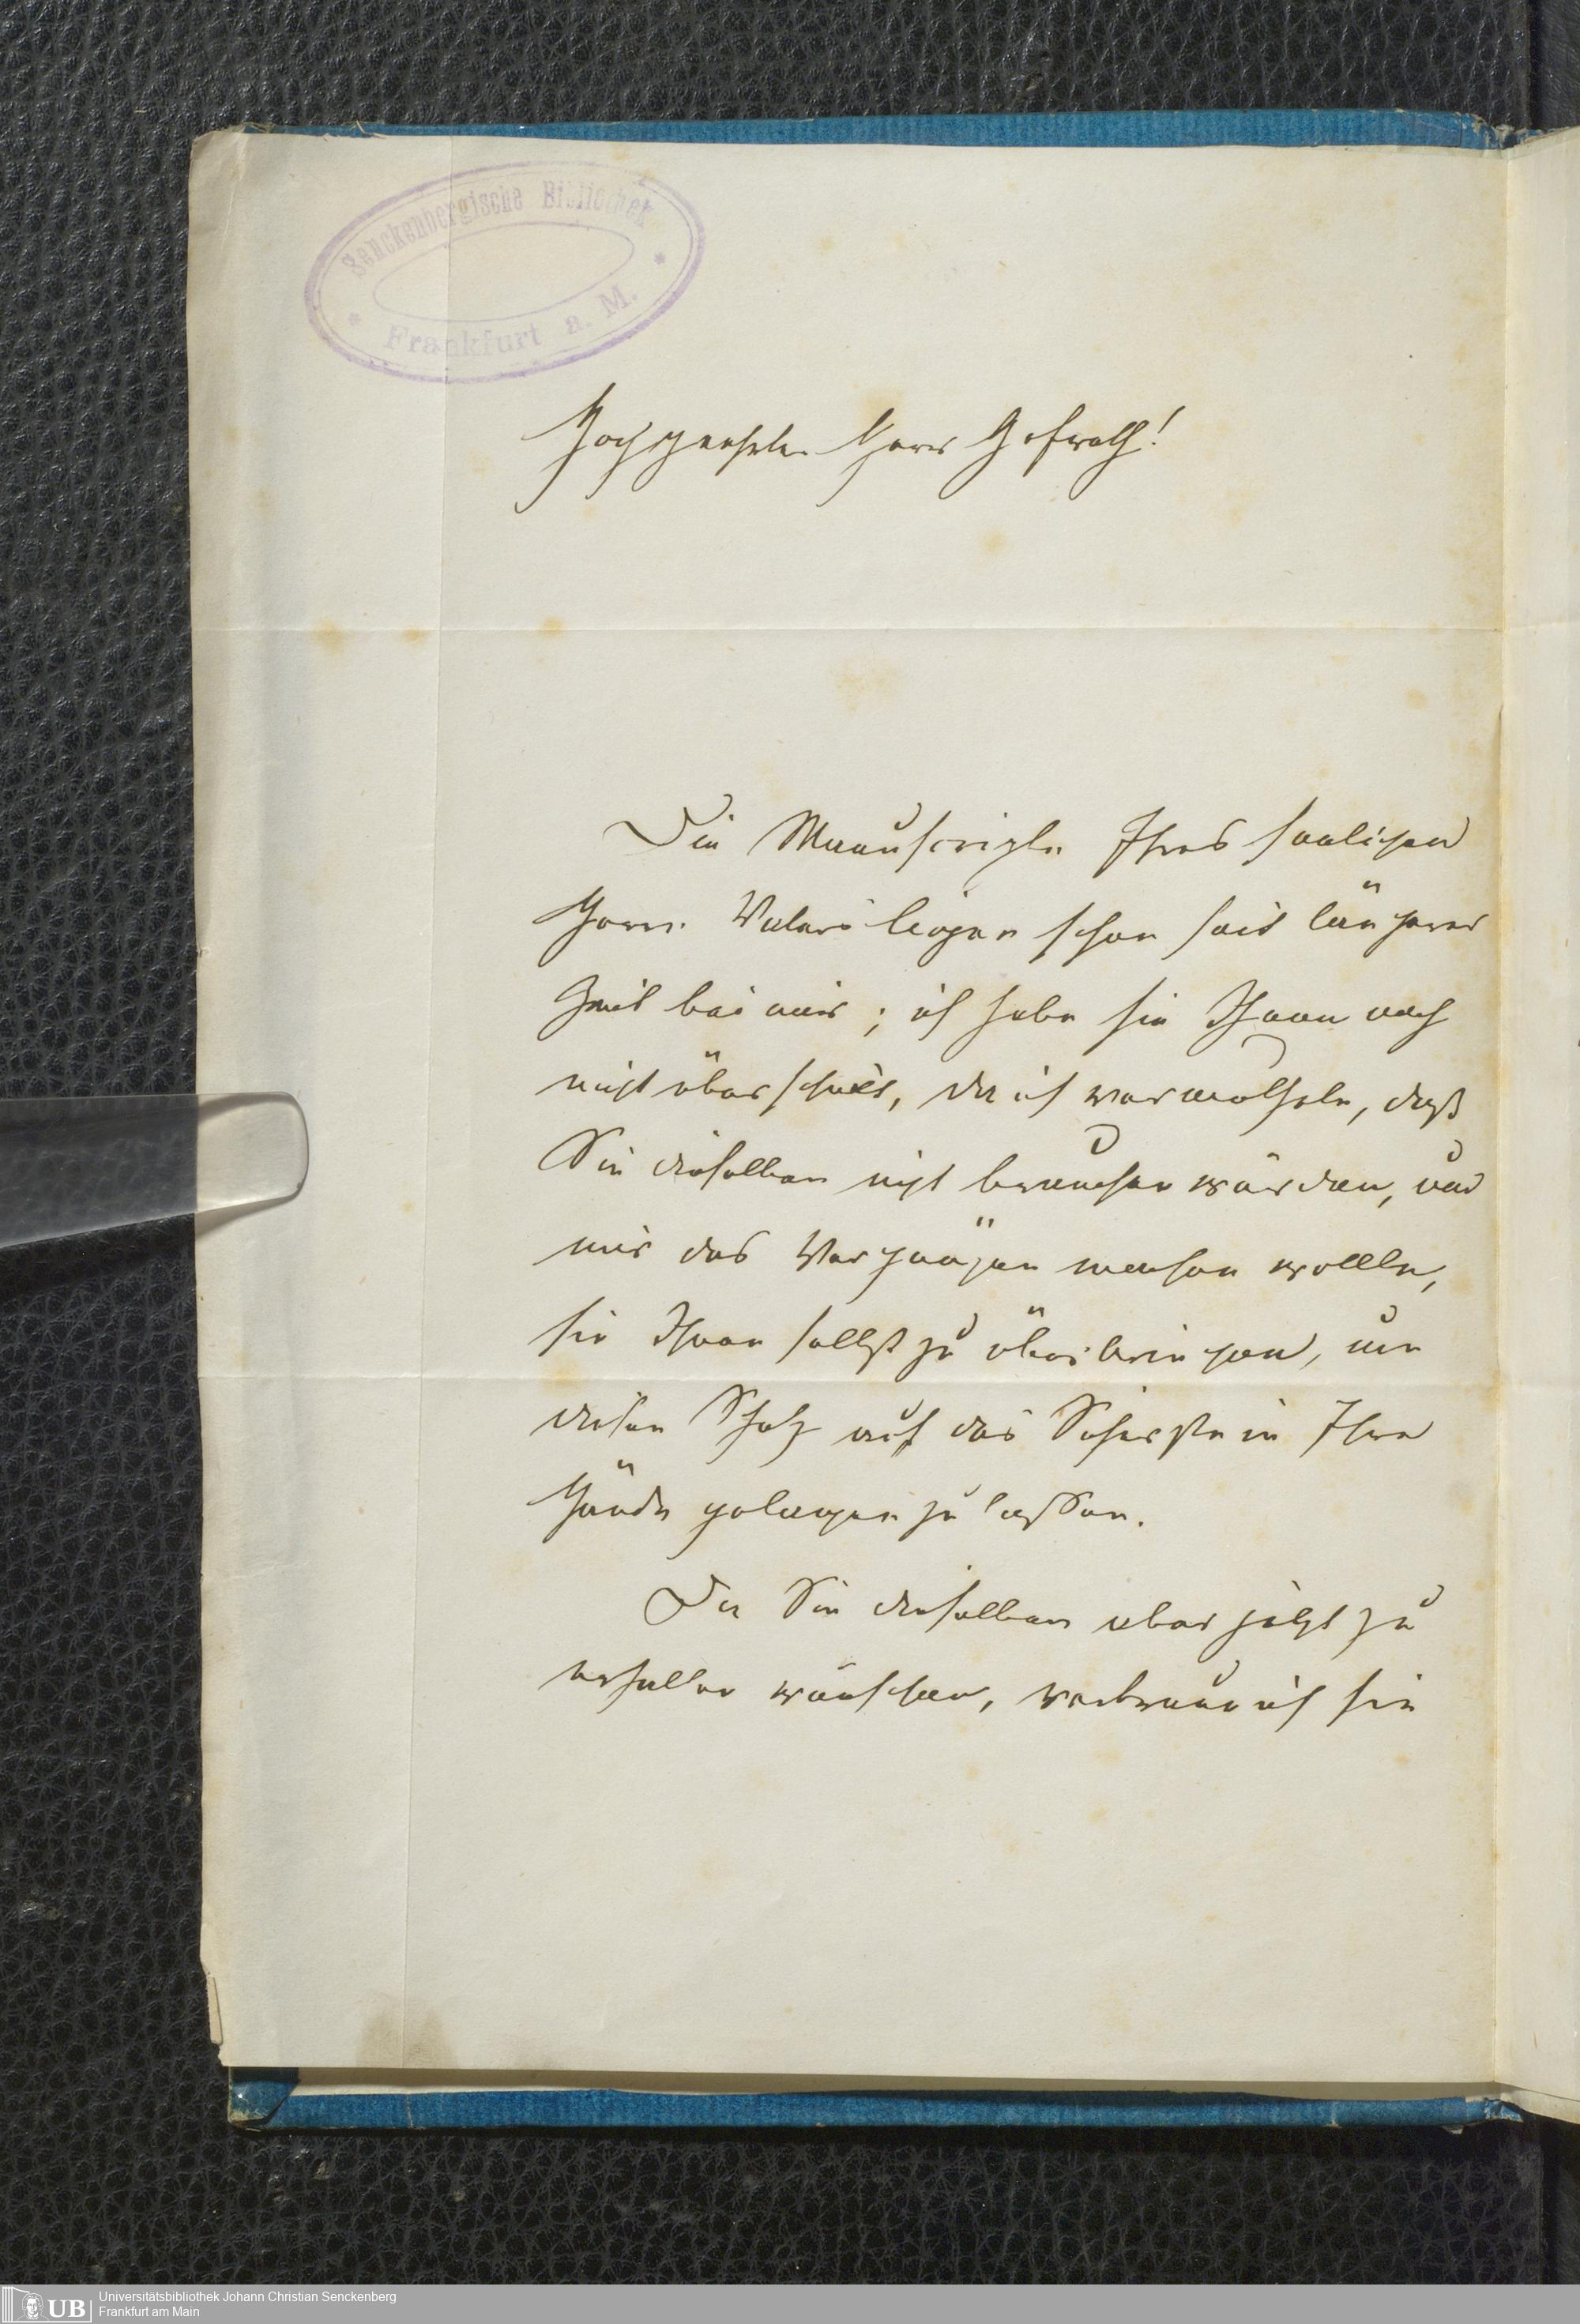 Senckenbergische Bibliothek
* Frankfurt a. M. *
Hochgeehrter Herr Hofrath!
Die Manuscripte Ihres seeligen
Herrn Vaters liegen schon seit längerer
Zeit bei mir; ich habe sie Ihnen noch
nicht überschickt, da ich vermuthete, daß
Sie dieselben nicht brauchen würden, und
mir das Vergnügen machen wollte,
sie Ihnen selbst zu überbringen, um
diesen Schatz auf das Sicherste in Ihre
Hände gelangen zu lassen.
Da Sie dieselben aber jetzt zu
erhalten wünschen, vertraue ich sie
UB
Universitätsbibliothek Johann Christian Senckenberg
Frankfurt am Main